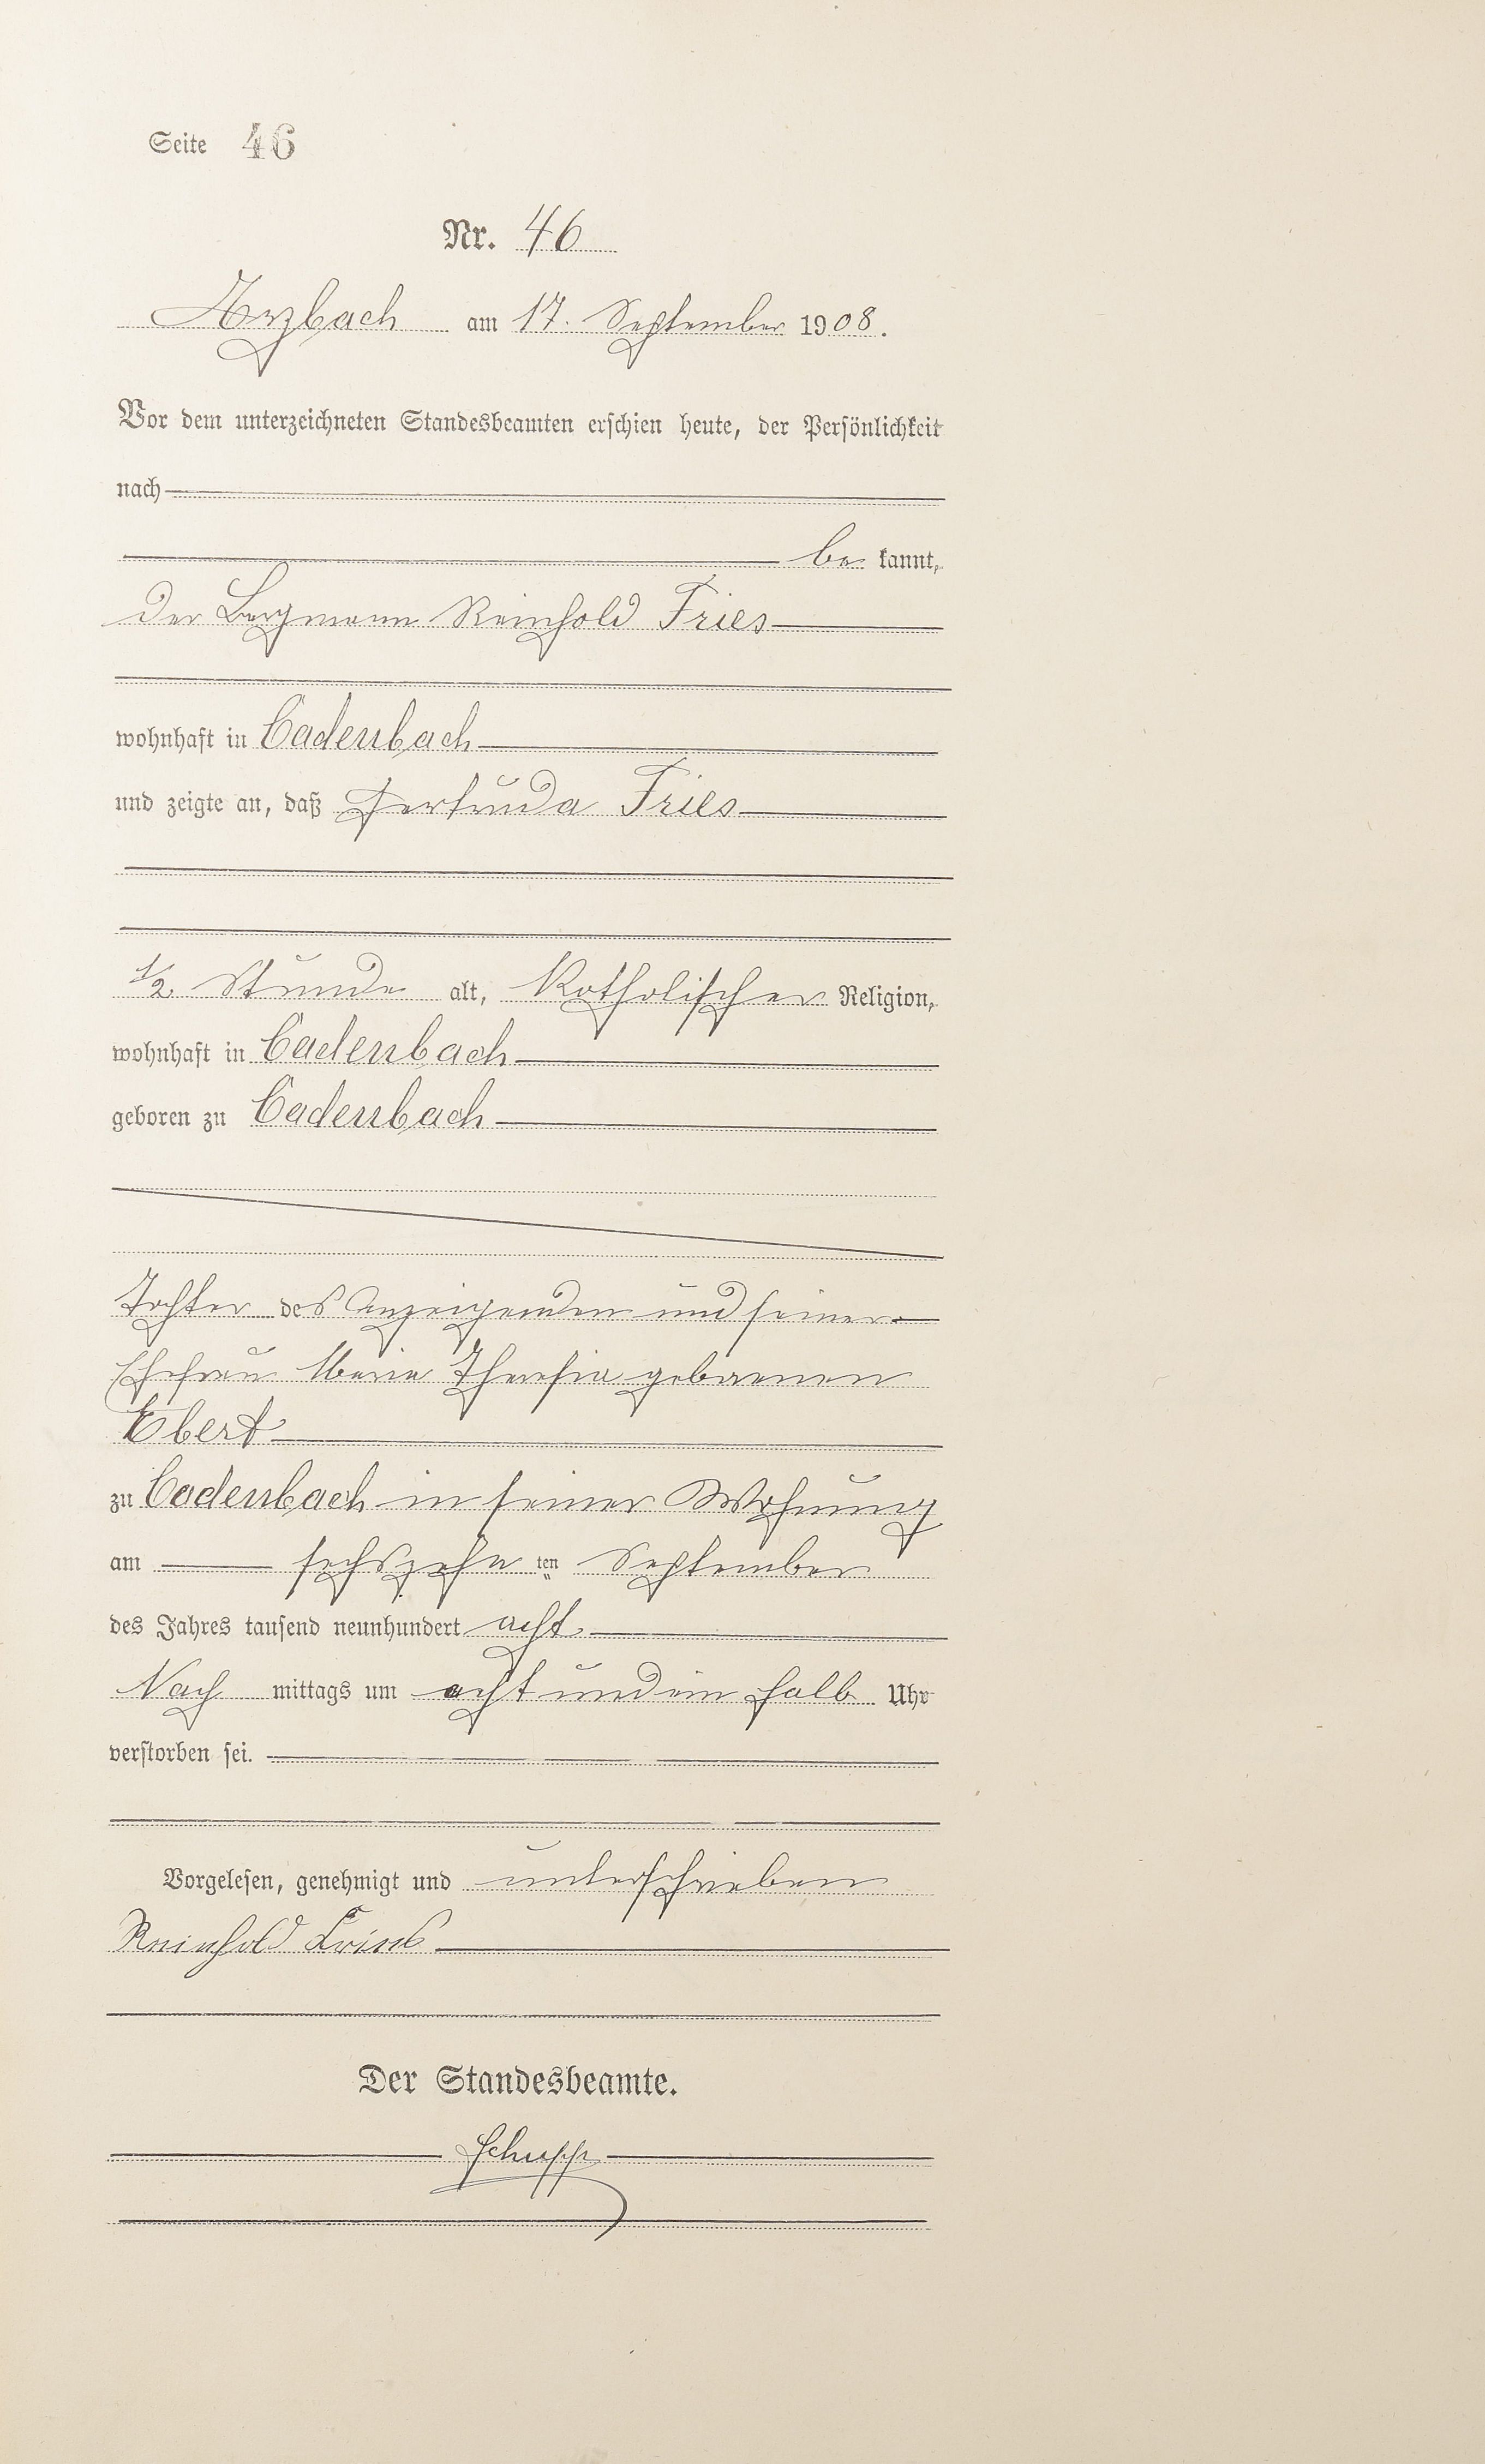 Seite 46
Nr. 46
Arzbach am 17. September 1908.
Vor dem unterzeichneten Standesbeamten erschien heute, der Persönlichkeit
nach
be kannt,
der Bergmann Reinhold Fries
wohnhaft in Cadenbach
und zeigte an, daß Gertruda Fries
1/2 Stunde alt, Katholischer Religion,
wohnhaft in Cadenbach
geboren zu Cadenbach
Tochter des Anzeigenden und seiner
Ehefrau Maria Theresia geborenen
Ebert
zu Cadenbach in seiner Wohnung
am sechszehn ten September
des Jahres tausend neunhundert acht
Nach mittags um acht und ein halb Uhr
verstorben sei.
Vorgelesen, genehmigt und unterschrieben
Reinhold Fries
Der Standesbeamte.
Schupp